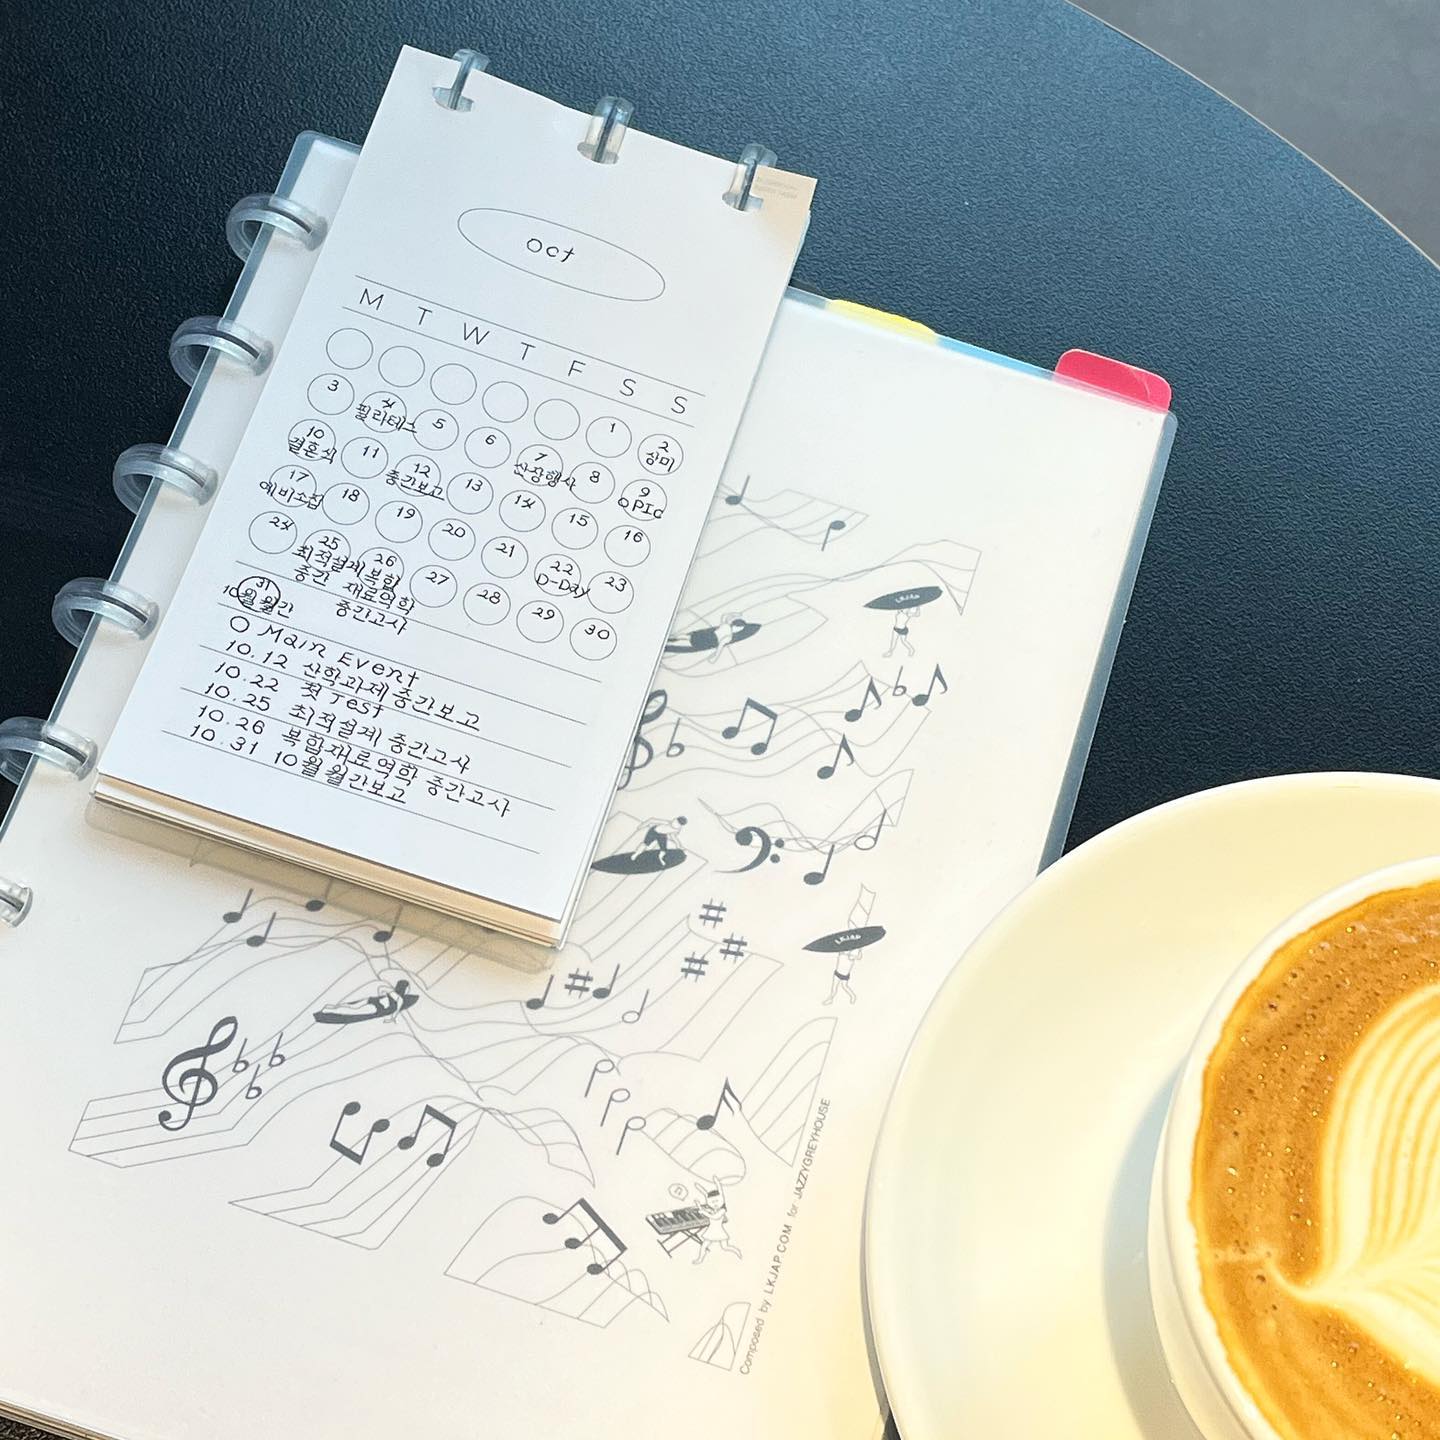 oct
M T W T F S S
1 2
상미
3 4 5 6 7 8 9
필라테스 산장행사 OPIc
10 11 12 13 14 15 16
결혼식 중간보고
17 18 19 20 21 22 23
예비소집 D-Day
24 25 26 27 28 29 30
최적설계 복합
중간 재료역학
중간고사
31
10월 월간
O Main Event
10.12 산학과제 중간보고
10.22 첫 Test
10.25 최적설계 중간고사
10.26 복합재료역학 중간고사
10.31 10월 월간보고
LKJAP
LKJAP
Composed by LKJAP.COM for JAZZYGREYHOUSE